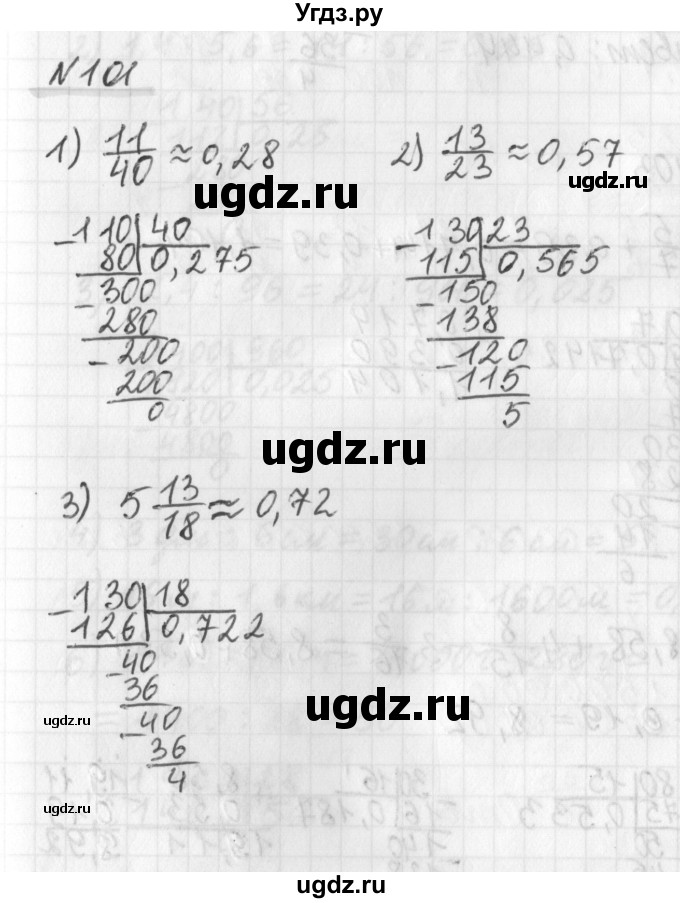 Угдз.ру
N101
1) 11/40 ≈ 0,28
2) 13/23 ≈ 0,57
ugdz.ru
ugdz.ru
-110 | 40
80 | 0,275
-300
280
-200
200
0
-130 | 23
115 | 0,565
-150
138
-120
115
5
ugdz.ru
3) 5 13/18 ≈ 0,72
-130 | 18
126 | 0,722
-40
36
-40
36
4
ugdz.ru
ugdz.ru
ugdz.ru
ugdz.ru